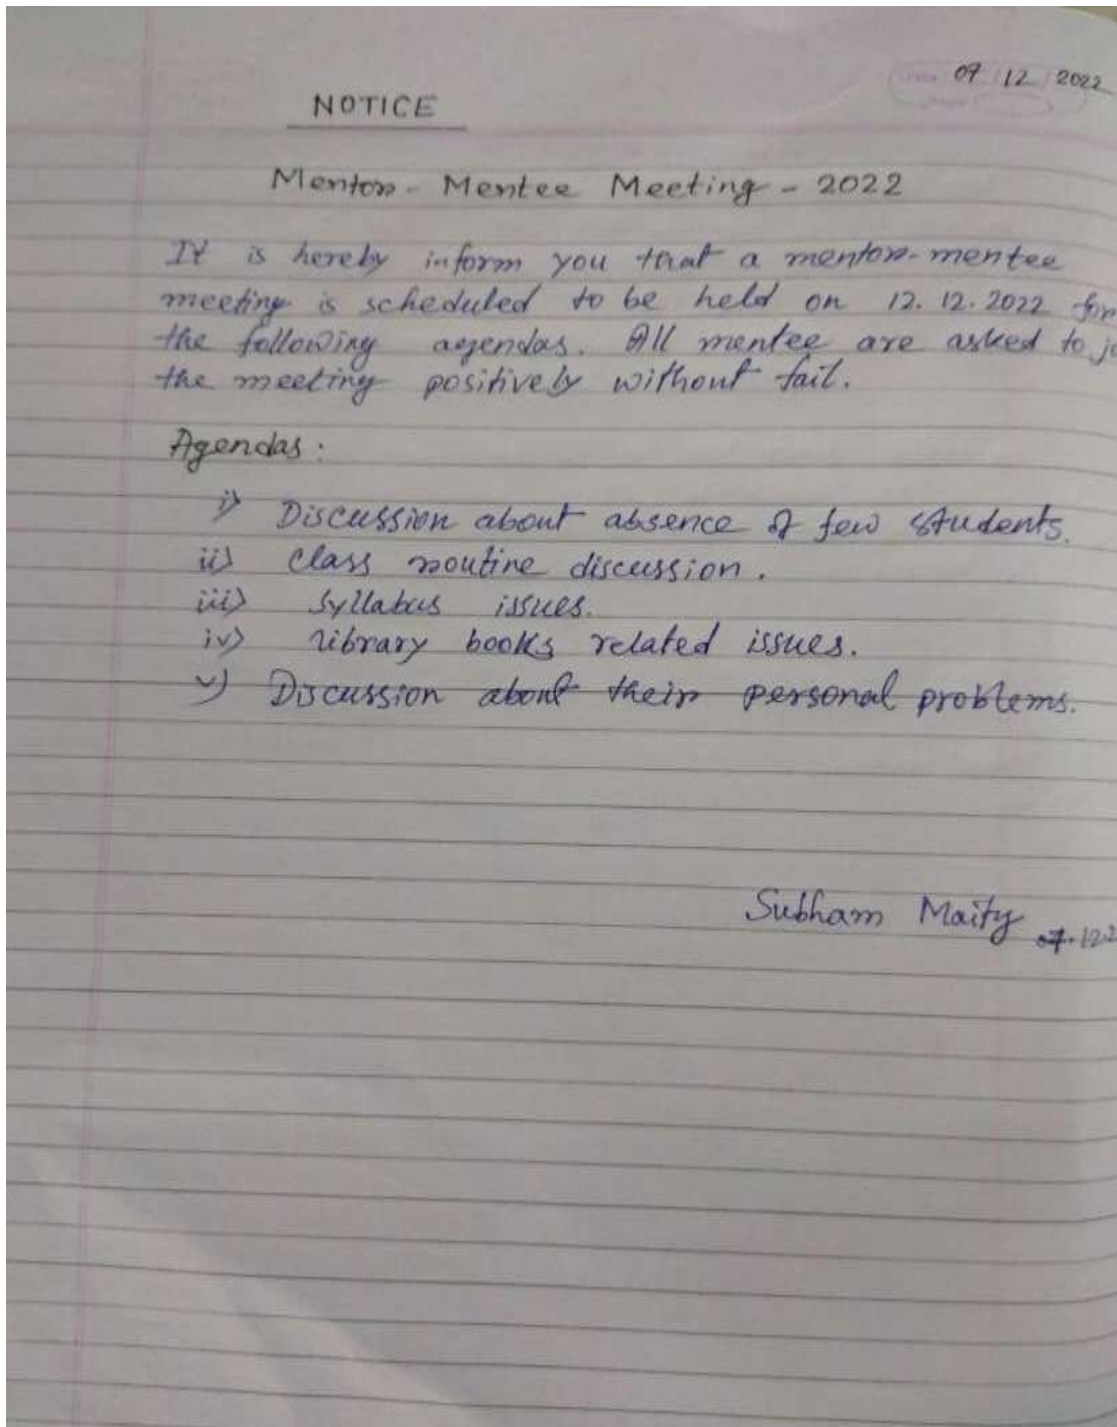 07 12 2022
NOTICE
Mentor - Mentee Meeting - 2022
It is hereby inform you that a mentor-mentee
meeting is scheduled to be held on 12.12.2022 for
the following agendas. All mentee are asked to jo
the meeting positively without fail.
Agendas :
i) Discussion about absence of few students.
ii) Class routine discussion.
iii) Syllabus issues.
iv) library books related issues.
v) Discussion about their personal problems.
Subham Maity 07.12.2